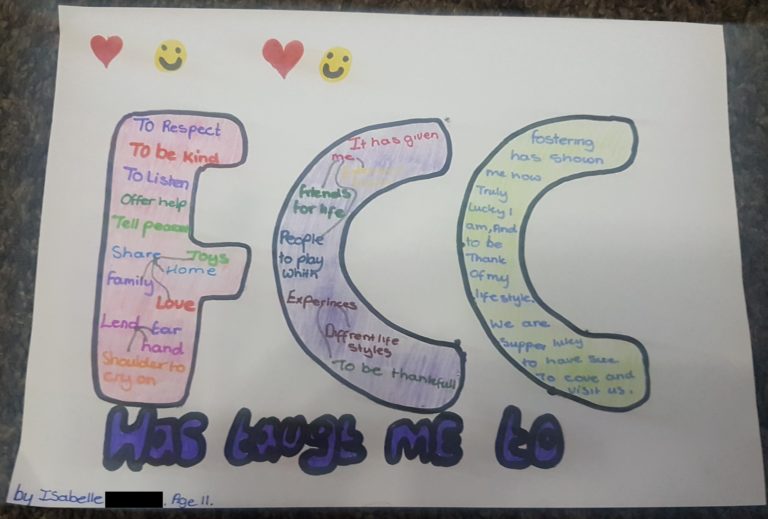 FCC
To Respect
To be kind
To Listen
Offer help
Tell
Share Toys
Home
Family
Love
Lend Ear
hand
Shoulder to
cry on
It has given
me
friends
for life
People
to play
whith
Experinces
Diffrent life
styles
To be thankfull
fostering
has shown
me how
Truly
Lucky I
am, And
to be
Thank
Of my
lifestyle.
We are
Supper lucky
to have
To come and
visit us.
Has taugt me to
by Isabelle
Age 11.